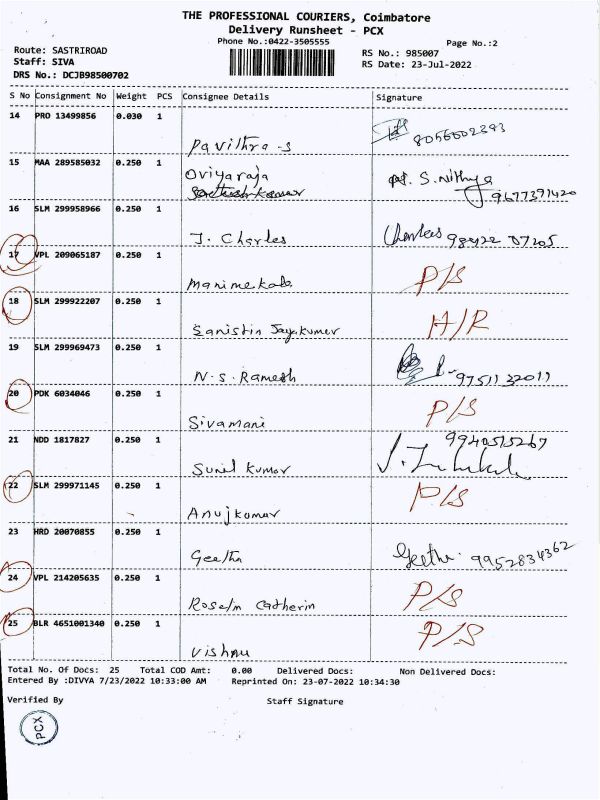 THE PROFESSIONAL COURIERS, Coimbatore
Delivery Runsheet - PCX
Phone No.:0422-3505555
Page No.:2
Route: SASTRIROAD
Staff: SIVA
DRS No.: DCJB98500702
RS No.: 985007
RS Date: 23-Jul-2022
S No Consignment No Weight PCS Consignee Details Signature
14 PRO 13499856 0.030 1
Pavithra-S 8056602393
15 MAA 289585032 0.250 1
Oviyaraja
S. Nithya
9677391420
16 SLM 299958966 0.250 1
J. Charles Charles
17 VPL 209065187 0.250 1
Manimekala P/S
18 SLM 299922207 0.250 1
Sanistin Jayakumar H/R
19 SLM 299969473 0.250 1
N.S. Ramesh
20 PDK 6034046 0.250 1
Sivamani P/S
21 NDD 1817827 0.250 1
9940515267
Sunil Kumar
22 SLM 299971145 0.250 1
Anujkumar P/S
23 HRD 20070855 0.250 1
Geetha Geetha. 9952834362
24 VPL 214205635 0.250 1
Roselin Catherin P/S
25 BLR 4651001340 0.250 1
Vishnu P/S
Total No. Of Docs: 25 Total COD Amt: 0.00 Delivered Docs: Non Delivered Docs:
Entered By :DIVYA 7/23/2022 10:33:00 AM Reprinted On: 23-07-2022 10:34:30
Verified By Staff Signature
PCX